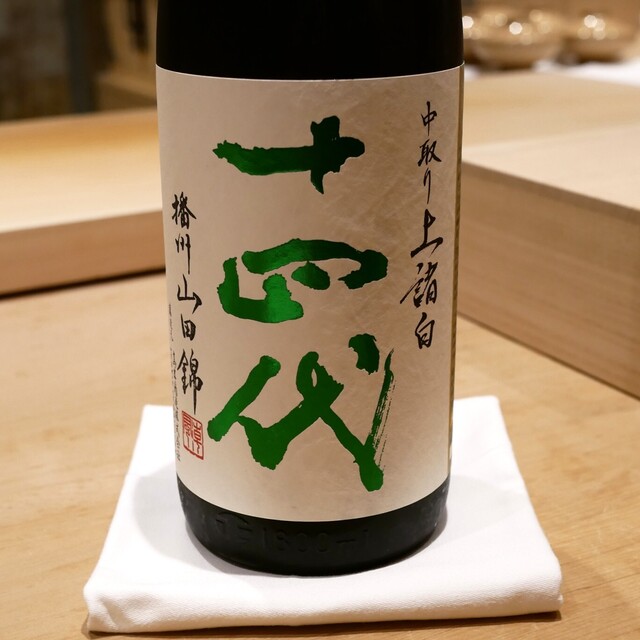 中取り上諸白
十四代
播州山田錦